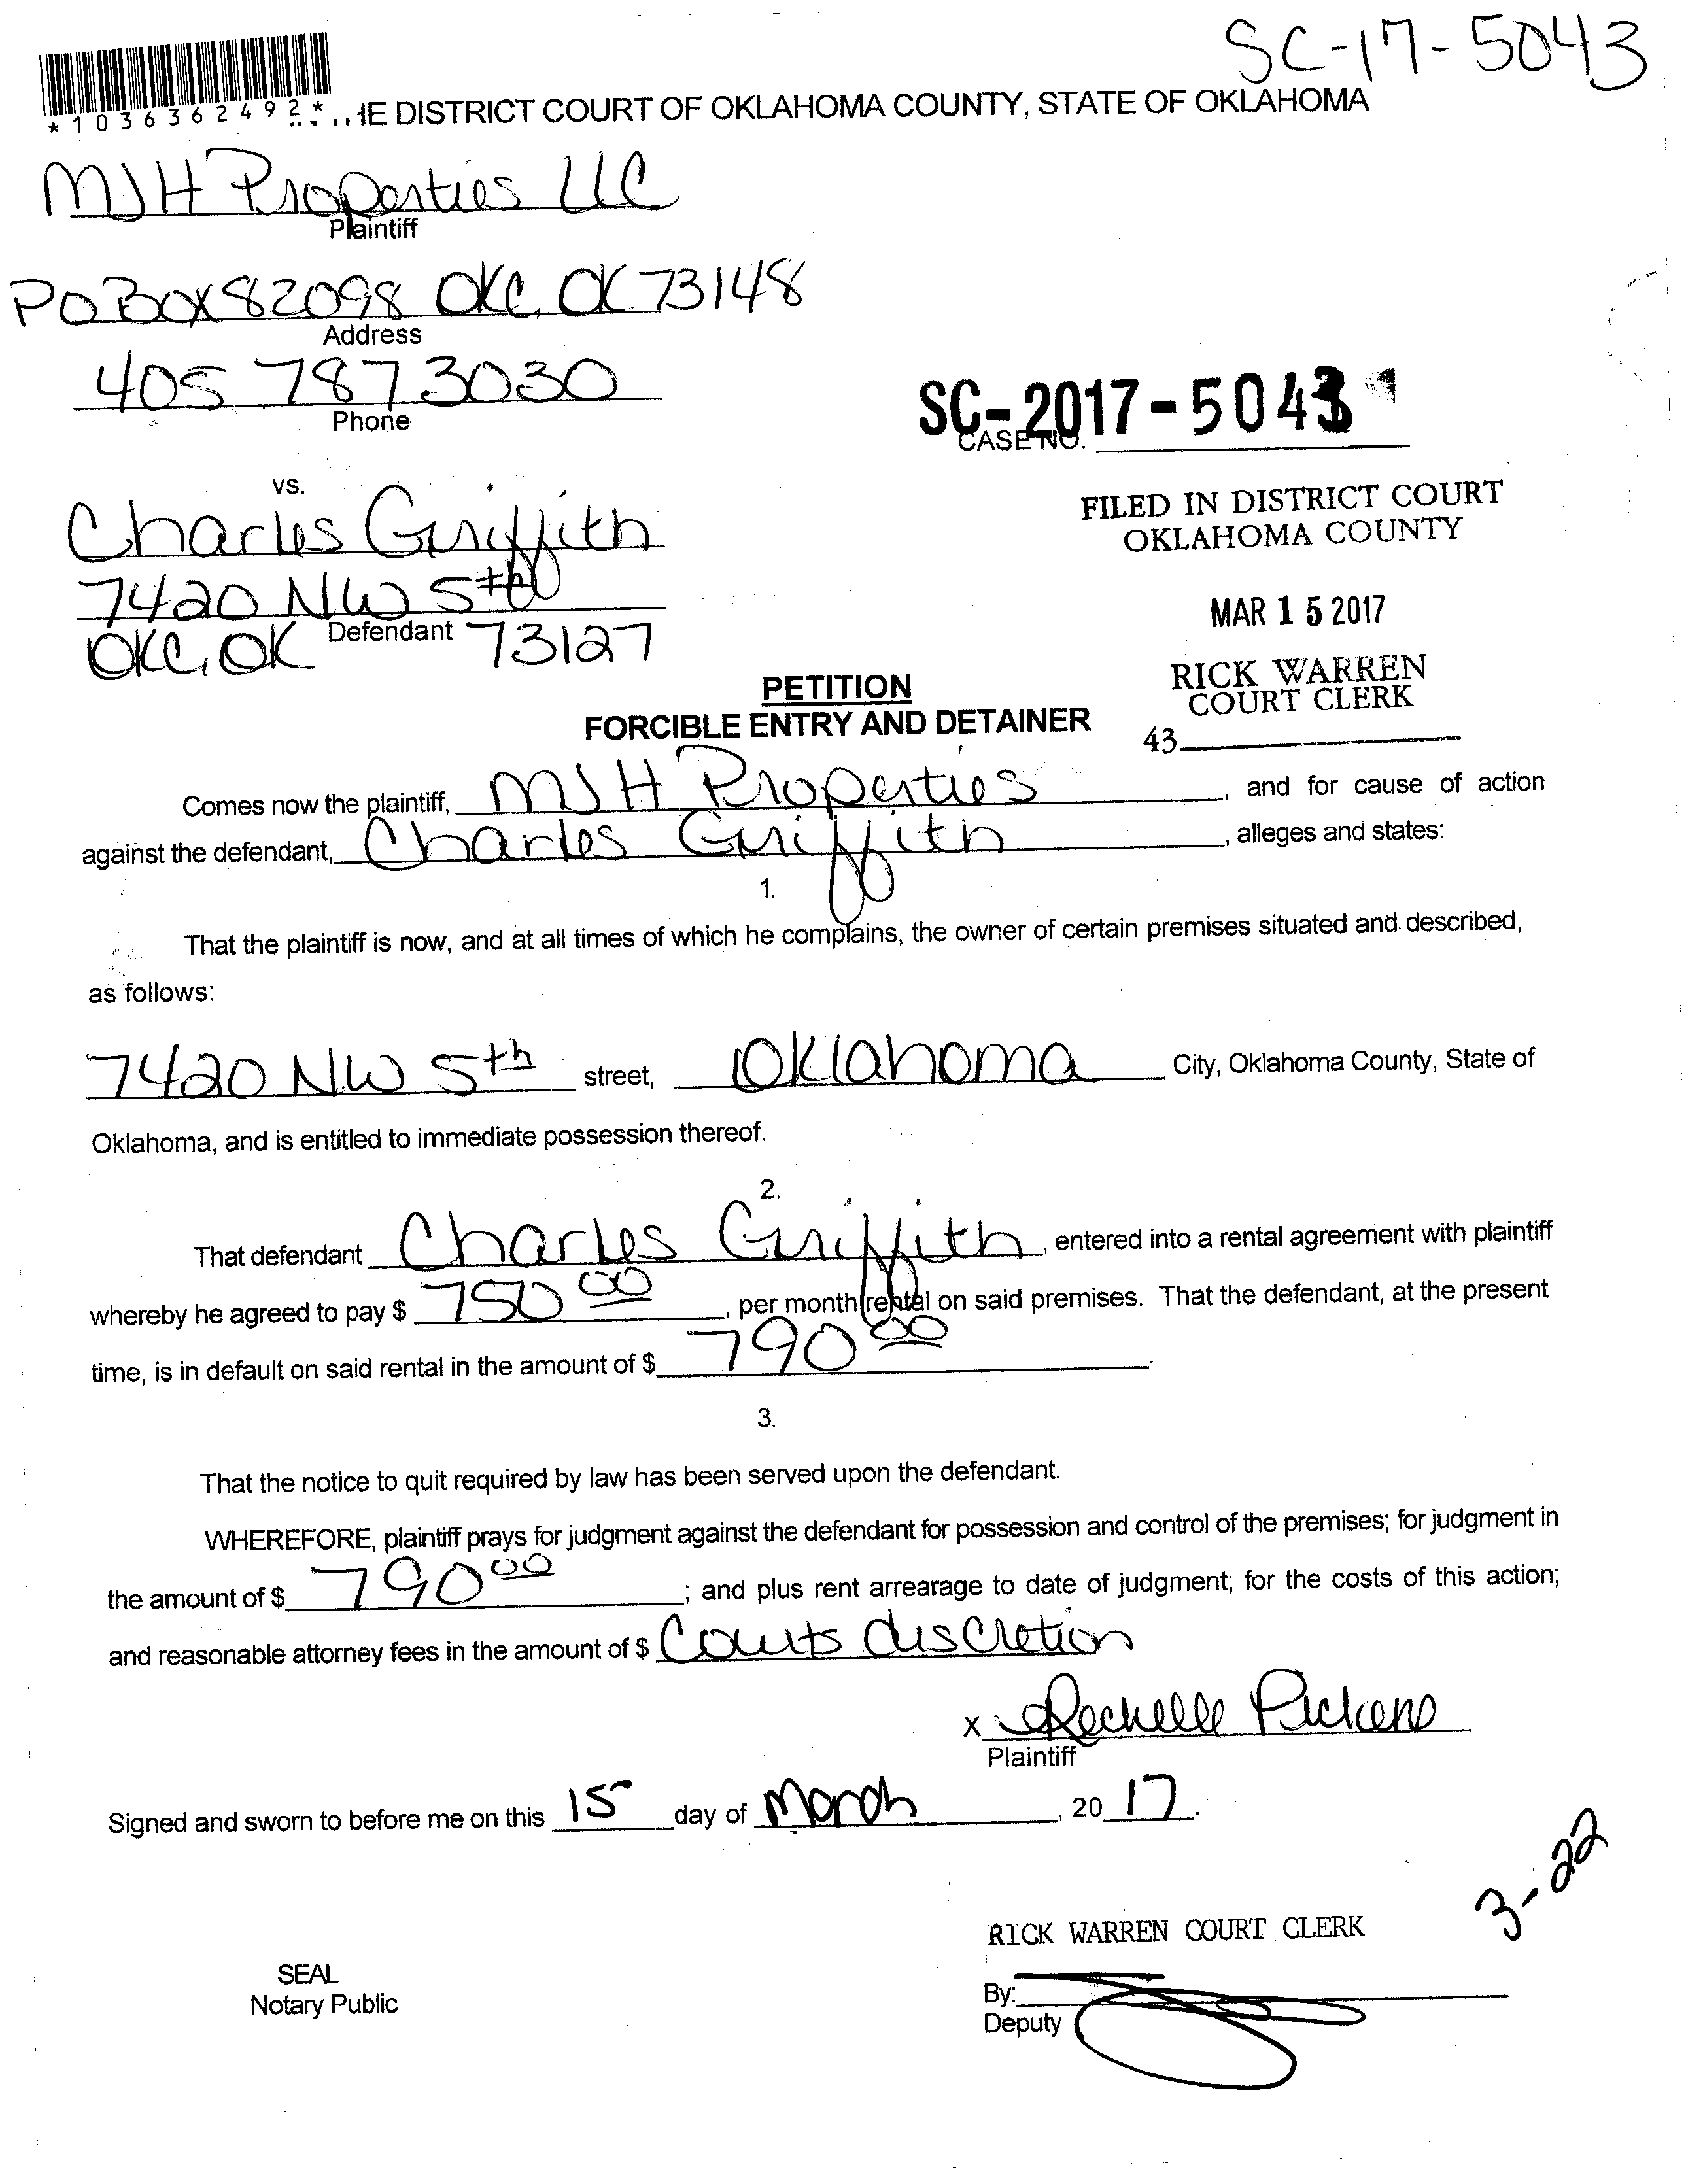 SC-17-5043
*1036362492*
HE DISTRICT COURT OF OKLAHOMA COUNTY, STATE OF OKLAHOMA
MJH Properties LLC
Plaintiff
PO Box 82098 OKC, OK 73148
Address
405 787 3030
Phone
SC-2017-5043
CASE NO.
vs.
Charles Griffith
7420 NW 5th
OKC, OK Defendant 73127
FILED IN DISTRICT COURT
OKLAHOMA COUNTY
MAR 15 2017
RICK WARREN
COURT CLERK
43
PETITION
FORCIBLE ENTRY AND DETAINER
Comes now the plaintiff, MJH Properties, and for cause of action
against the defendant, Charles Griffith, alleges and states:
1.
That the plaintiff is now, and at all times of which he complains, the owner of certain premises situated and described,
as follows:
7420 NW 5th street, Oklahoma City, Oklahoma County, State of
Oklahoma, and is entitled to immediate possession thereof.
2.
That defendant Charles Griffith, entered into a rental agreement with plaintiff
whereby he agreed to pay $ 750 00, per month rental on said premises. That the defendant, at the present
time, is in default on said rental in the amount of $ 790 00.
3.
That the notice to quit required by law has been served upon the defendant.
WHEREFORE, plaintiff prays for judgment against the defendant for possession and control of the premises; for judgment in
the amount of $ 790 00; and plus rent arrearage to date of judgment; for the costs of this action;
and reasonable attorney fees in the amount of $ Courts discretion
x Rechelle Pickens
Plaintiff
Signed and sworn to before me on this 15 day of March, 20 17.
3-22
RICK WARREN COURT CLERK
SEAL
Notary Public
By:
Deputy